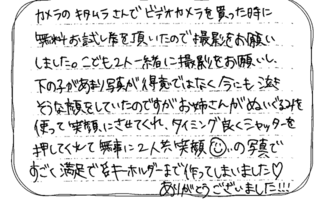 カメラのキタムラさんでビデオカメラを買った時に
無料お試し券を頂いたので撮影をお願い
しました。こども2人一緒に撮影をお願いし、
下の子があまり写真が得意ではなく今にも泣き
そうな顔をしていたのですがお姉さんがぬいぐるみを
使って笑顔にさせてくれ、タイミング良くシャッターを
押してくれて無事に2人共笑顔の写真で
すごく満足でキーホルダーまで作ってしまいました♡
ありがとうございました!!!